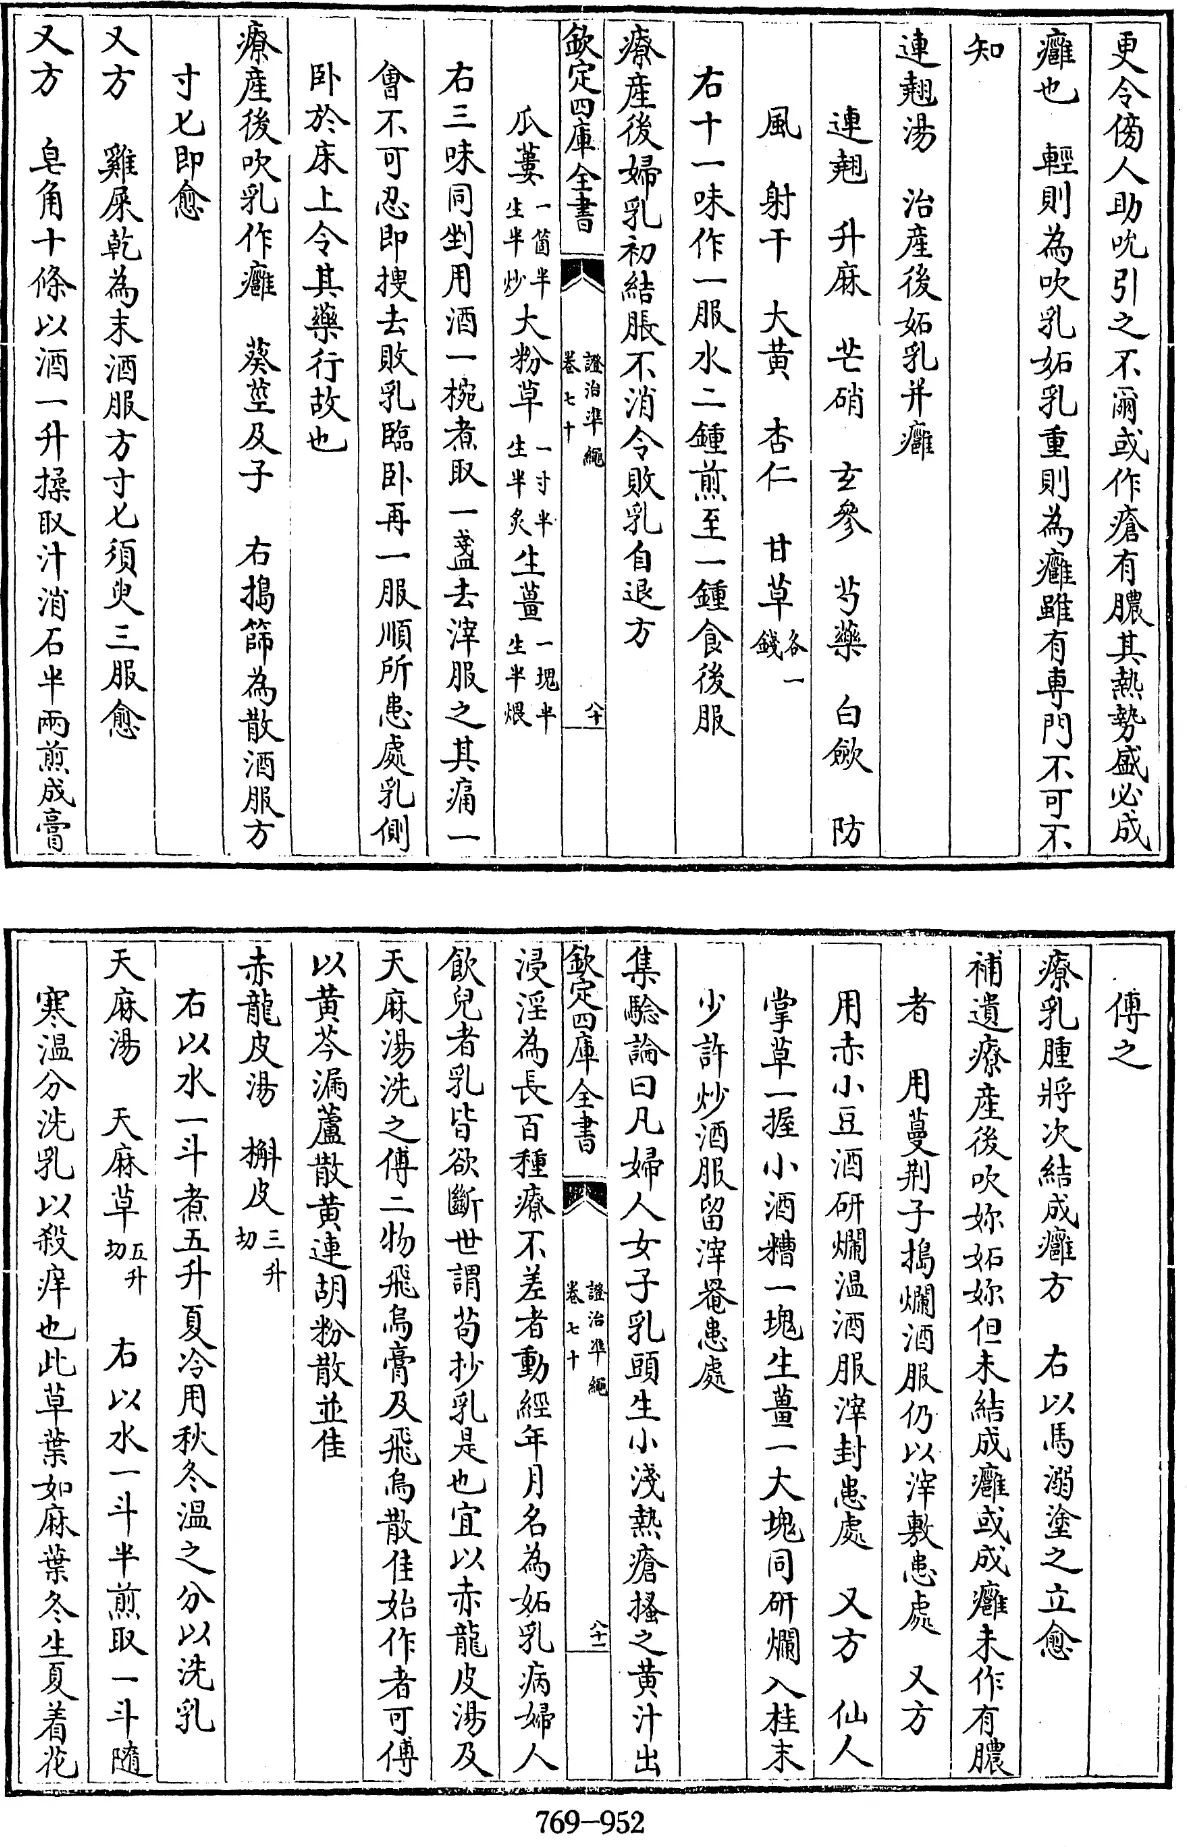 更令傍人助吮引之不爾或作瘡有膿其熱勢盛必成
癰也　輕則為吹乳妬乳重則為癰雖有専門不可不
知
連翹湯　治産後妬乳并癰
連翹　升麻　芒硝　玄參　芍藥　白斂　防
風　射干　大黄　杏仁　甘草各一錢
右十一味作一服水二鍾煎至一鍾食後服
療産後婦乳初結脹不消令敗乳自退方
欽定四庫全書　證治準繩　卷七十　八十
瓜蔞一箇半生半炒大粉草一寸半生半炙生薑一塊半生半煨
右三味同剉用酒一椀煮取一盞去滓服之其痛一
會不可忍即搜去敗乳臨卧再一服順所患處乳側
卧於床上令其藥行故也
療産後吹乳作癰　葵莖及子　右搗篩為散酒服方
寸匕即愈
又方　雞屎乾為末酒服方寸匕須臾三服愈
又方　皂角十條以酒一升揉取汁消石半兩煎成膏
傅之
療乳腫將次結成癰方　右以馬溺塗之立愈
補遺療産後吹妳妬妳但未結成癰或成癰未作有膿
者　用蔓荆子搗爛酒服仍以滓敷患處　又方
用赤小豆酒研爛温酒服滓封患處　又方　仙人
掌草一握小酒糟一塊生薑一大塊同研爛入桂末
少許炒酒服留滓罨患處
集驗論曰凡婦人女子乳頭生小淺熱瘡搔之黄汁出
欽定四庫全書　證治準繩　卷七十　八十一
浸淫為長百種療不差者動經年月名為妬乳病婦人
飲兒者乳皆欲斷世謂苟抄乳是也宜以赤龍皮湯及
天麻湯洗之傅二物飛烏膏及飛烏散佳始作者可傅
以黄芩漏蘆散黄連胡粉散並佳
赤龍皮湯　槲皮三升切
右以水一斗煮五升夏冷用秋冬温之分以洗乳
天麻湯　天麻草五升切　右以水一斗半煎取一斗隨
寒温分洗乳以殺痒也此草葉如麻葉冬生夏着花
769-952